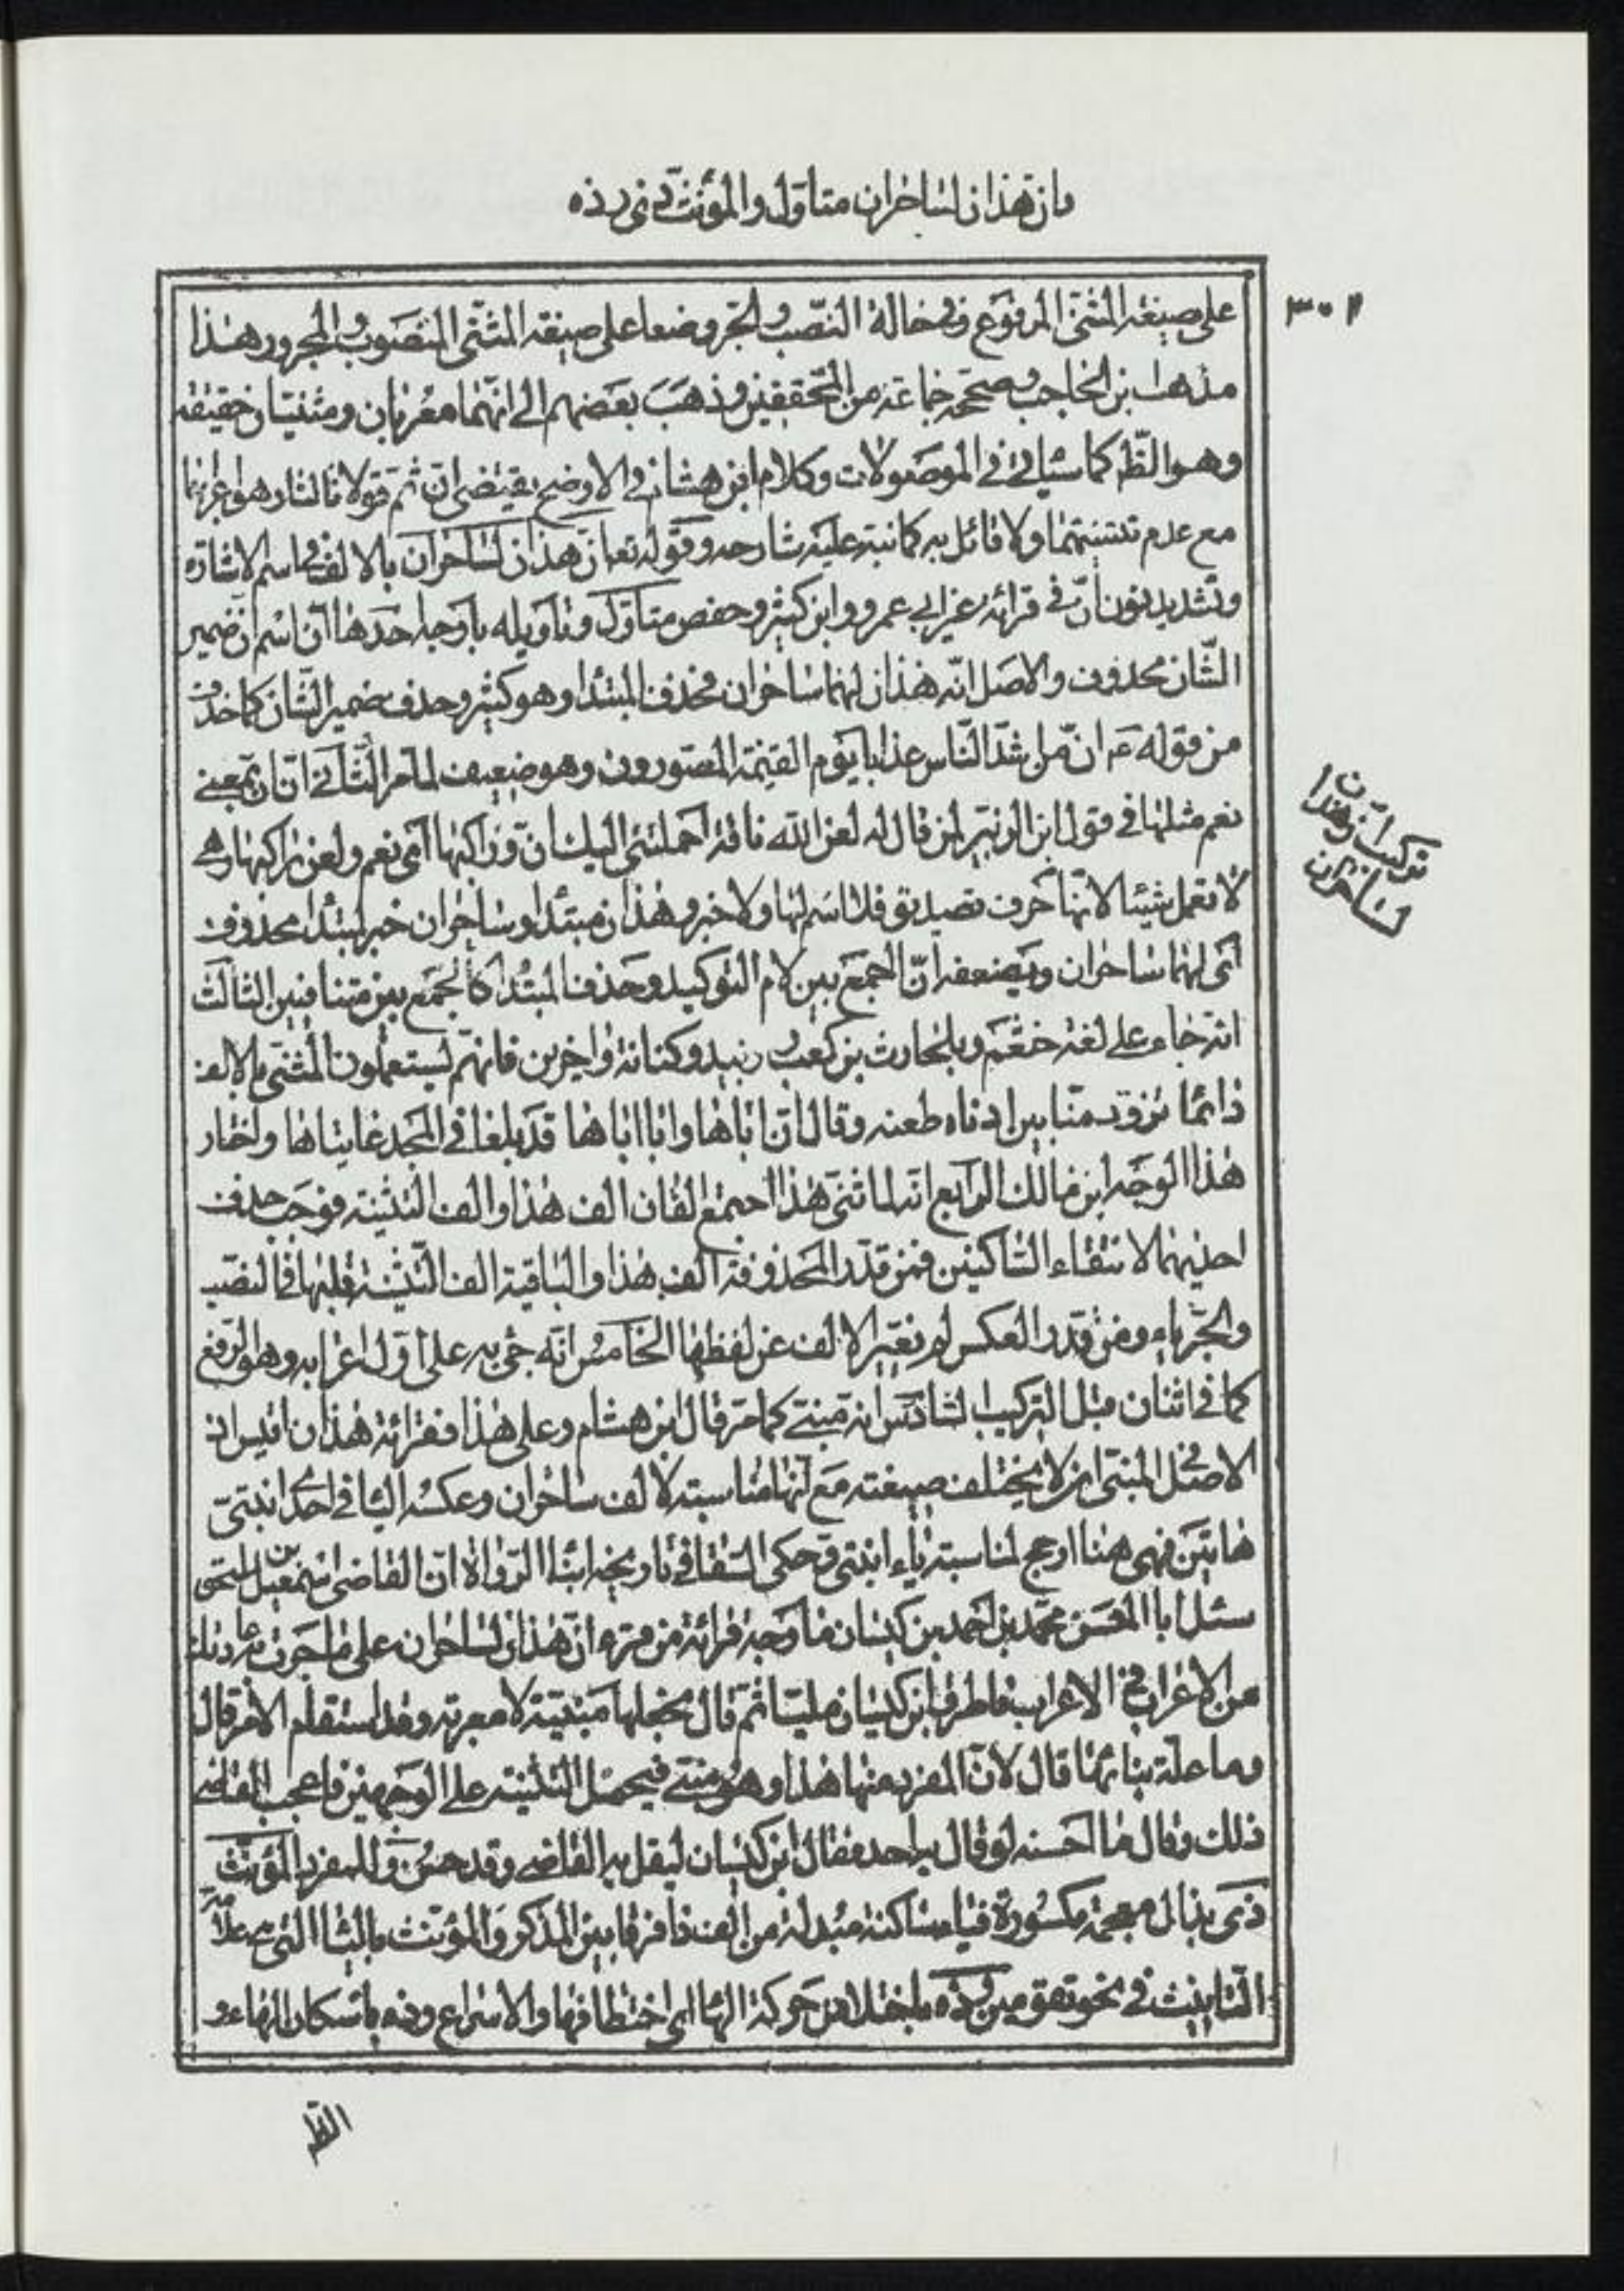 وان هذان لساحران متاول والمؤنث ذي ذه
٣٠٢
على صيغة المثنى المرفوع وفي حالة النصب والجر وضعا على صيغة المثنى المنصوب والمجرور هذا
مذهب ابن الحاجب وصححه جماعة من المحققين وذهب بعضهم الى انهما معربان ومثنيان حقيقة
وهو الظ كما سياتي في الموصولات وكلام ابن هشام في الاوضح يقتضي ان ثم قولا ثالثا وهو اعرابهما
مع عدم تثنيتهما ولا قائل به كما نبه عليه شارحه وقوله تعا ان هذان لساحران بالالف في اسم الاشارة
وتشديد نون ان في قرائة غير ابي عمرو وابن كثير وحفص متاول وتاويله باوجه احدها ان اسم ان ضمير
الشان محذوف والاصل انه هذان لهما ساحران فحذف المبتدا وهو كثير وحذف ضمير الشان كما حذف
من قوله ع م ان من اشد الناس عذابا يوم القيمة المصورون وهو ضعيف لما مر الثاني ان ان بمعنى
نعم مثلها في قول ابن الزبير لمن قال له لعن الله ناقة احملتني اليك ان وراكبها اي نعم ولعن راكبها وهي
لا تعمل شيئا لانها حرف تصديق فلا اسم لها ولا خبر وهذان مبتدا وساحران خبر لمبتدا محذوف
اي لهما ساحران ويضعفه ان الجمع بين لام التوكيد وحذف المبتدا كالجمع بين متنافيين الثالث
انه جاء على لغة خثعم وبلحارث بن كعب وزبيد وكنانة واخرين فانهم يستعملون المثنى بالالف
دائما تزود منا بين اذناه طعنه وقال ان اباها وابا اباها قد بلغا في المجد غايتاها واختار
هذا الوجه ابن مالك الرابع انه لما ثنى هذا اجتمع الفان الف هذا والف التثنية فوجب حذف
احديهما لالتقاء الساكنين فمن قدر المحذوفة الف هذا والباقية الف التثنية قلبها في النصب
والجر ياء ومن قدر العكس لم تغير الالف عن لفظها الخامس انه جئ به على اول اعرابه وهو الرفع
كما في اثنان قبل التركيب السادس انه مبني كما مر قال ابن هشام وعلى هذا فقرائة هذان اقيس اذ
الاصل في المبنى ان لا يختلف صيغته مع انها مناسبة لالف ساحران وعكسه اليا في احدى ابنتي
هاتين فهي هنا ارجح لمناسبة ياء ابنتي وحكى السقا في تاريخه ابنا الرواة ان القاضي اسمعيل بن اسحق
سئل ابا الحسن محمد بن احمد بن كيسان ما وجه قرائة من قرء ان هذان لساحران على ما جرت به عادتك
من الاغراب في الاعراب فاطرق ابن كيسان مليا ثم قال نجعلها مبنية لا معربة وقد استقام الامر قال
وما علة بنائها قال لان المفرد منها هذا وهو مبني فيحمل التثنية على الوجهين فاعجب القاضي
ذلك وقال ما احسنه لو قال به احد فقال ابن كيسان ليقل به القاضي وقد حسن وللمفرد المؤنث
ذي بذال معجمة مكسورة فياء ساكنة مبدلة من الف ذا فرقا بين المذكر والمؤنث بالياء التي هي علامة
التانيث في نحو تقومين وذه باختلاس حركة الها اي اختطافها والاسراع وذه باسكان الهاء و
تركيب ان هذان
لساحران
الظ